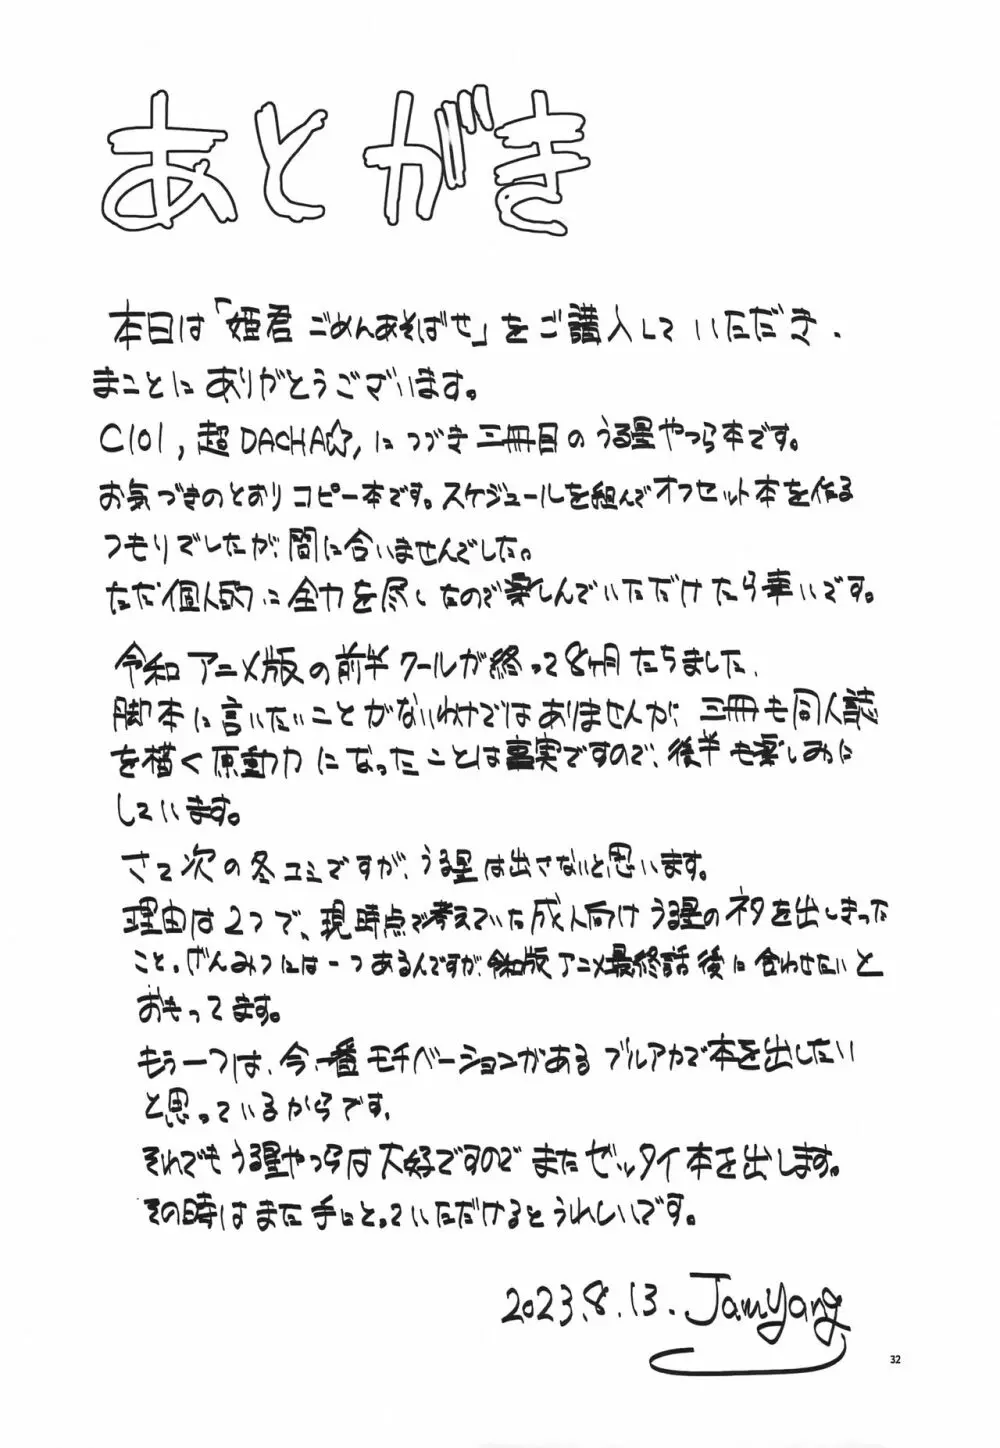 あとがき
本日は「姫君ごめんあそばせ」をご購入していただき、
まことにありがとうございます。
C101,超DACHA☆,につづき三冊目のうる星やつら本です。
お気づきのとおりコピー本です。スケジュールを組んでオフセット本を作る
つもりでしたが、間に合いませんでした。
ただ個人的に全力を尽くしたので楽しんでいただけたら幸いです。
令和アニメ版の前半クールが終って8ヶ月たちました、
脚本に言いたいことがないわけではありませんが、三冊も同人誌
を描く原動力になったことは事実ですので、後半も楽しみに
しています。
さて次の冬コミですが、うる星は出さないと思います。
理由は2つで、現時点で考えていた成人向けうる星のネタを出しきった
こと。げんみつには一つあるんですが、令和版アニメ最終話後に合わせたいと
おもってます。
もう一つは、今一番モチベーションがあるブルアカで本を出したい
と思っているからです、
それでもうる星やつらは大好ですのでまたゼッタイ本を出します。
その時はまた手にとっていただけるとうれしいです。
2023.8.13. Jamyang
32